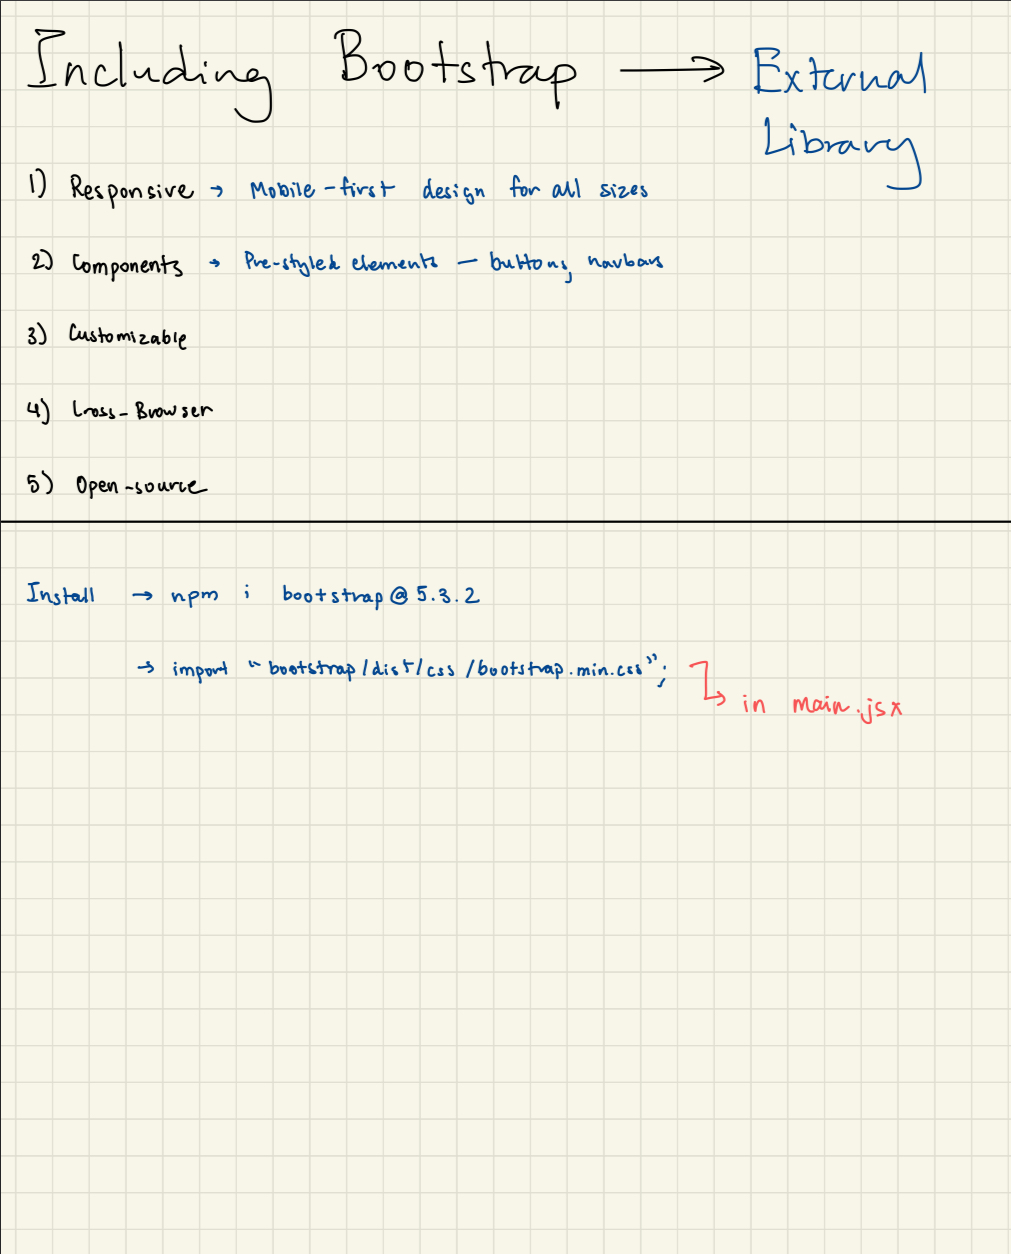 Including Bootstrap → External
Library
1) Responsive → Mobile-first design for all sizes
2) Components → Pre-styled elements — buttons, navbars
3) Customizable
4) Cross-Browser
5) Open-source
Install → npm i bootstrap@5.3.2
→ import "bootstrap/dist/css/bootstrap.min.css";
in main.jsx